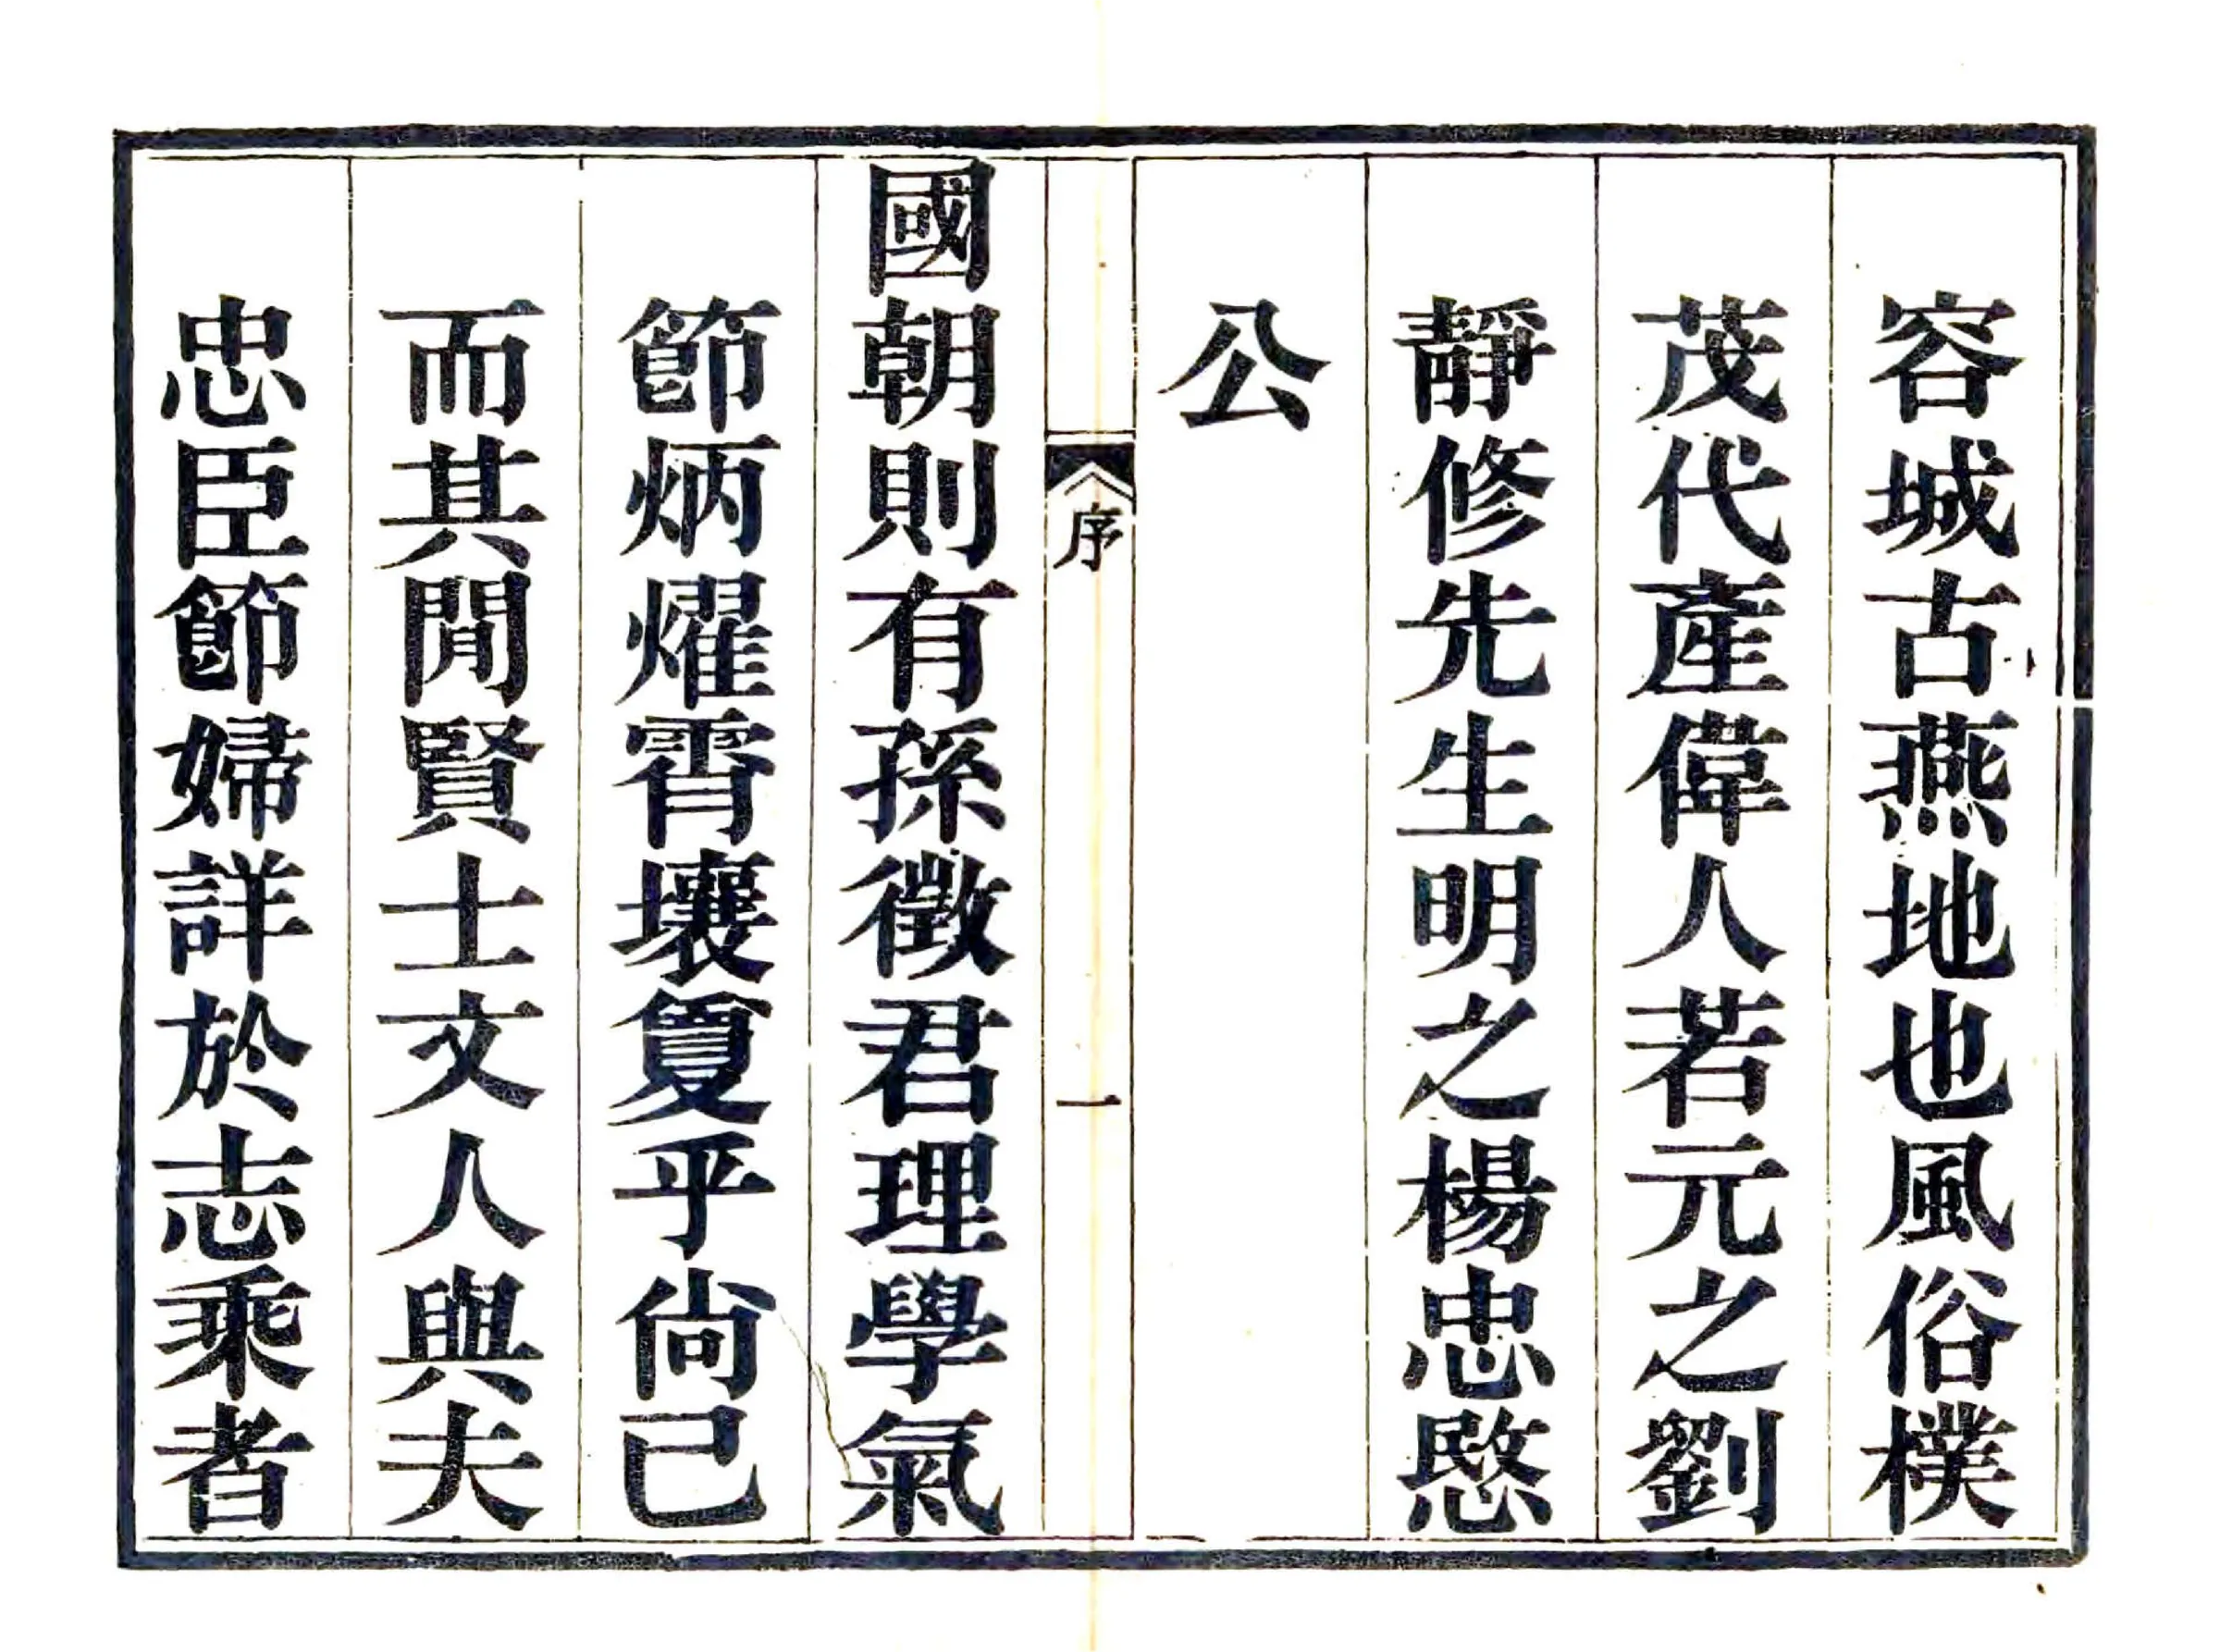 容城古燕地也風俗樸
茂代產偉人若元之劉
靜修先生明之楊忠愍
公
序
一
國朝則有孫徵君理學氣
節炳燿霄壤敻乎尙已
而其閒賢士文人與夫
忠臣節婦詳於志乘者